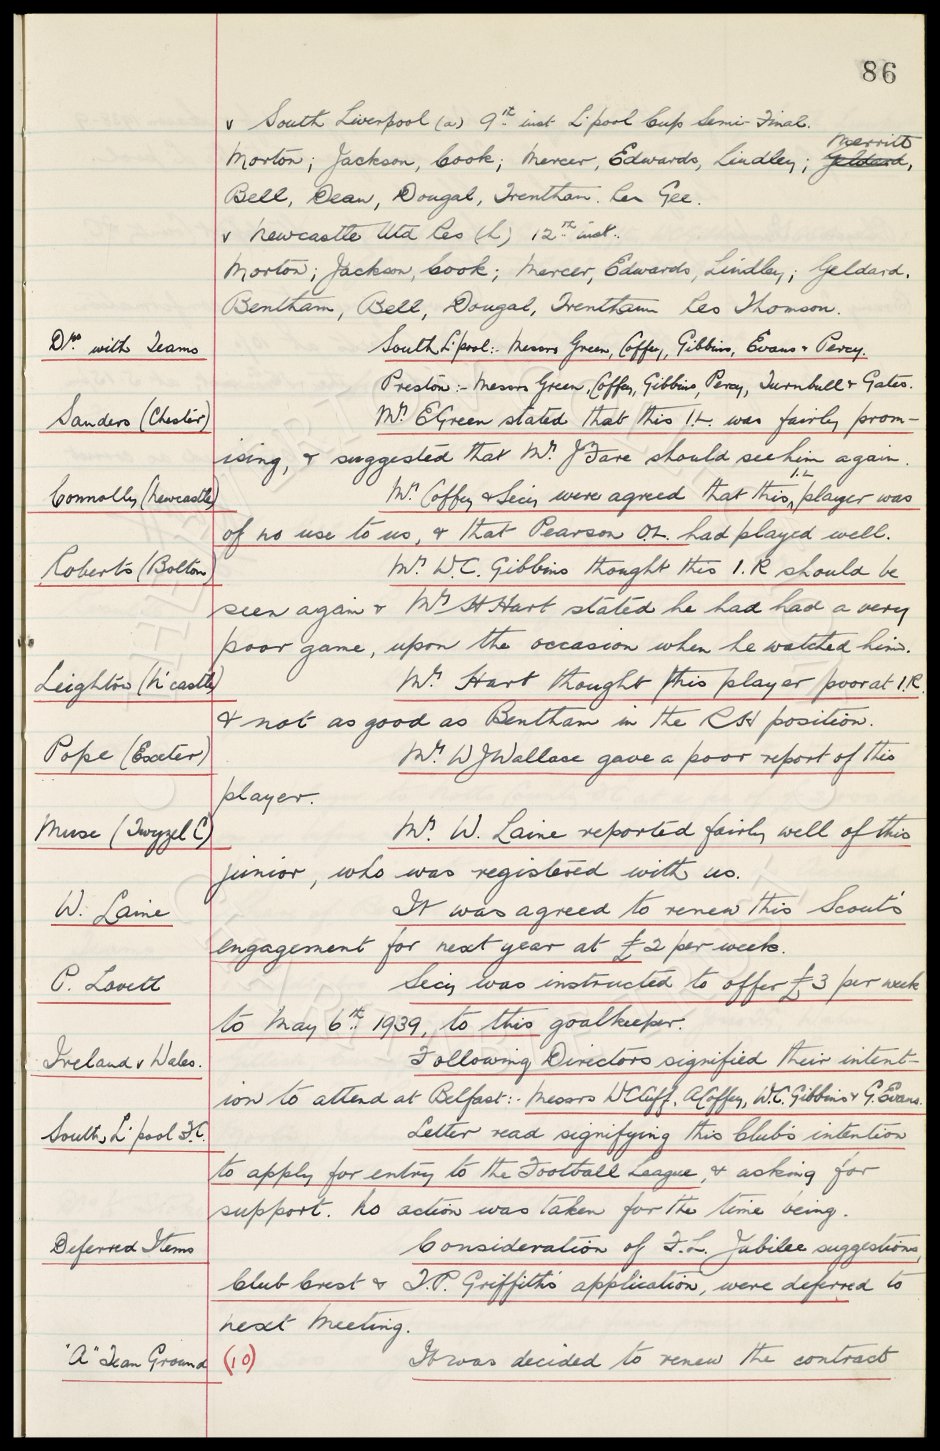 86
v South Liverpool (a) 9th inst L'pool Cup Semi-Final.
Merritt
Morton; Jackson, Cook; Mercer, Edwards, Lindley; Geldard,
Bell, Dean, Dougal, Trentham. Res Gee.
v Newcastle Utd Res (h) 12th inst.
Morton; Jackson, Cook; Mercer, Edwards, Lindley; Geldard.
Bentham, Bell, Dougal, Trentham Res Thomson.
Drs with Teams South L'pool:- Messrs Green, Coffey, Gibbins, Evans & Percy.
Preston:- Messrs Green, Coffey, Gibbins, Percy, Turnbull & Gates.
Sanders (Chester) Mr. E Green stated that this I.L. was fairly prom-
ising, & suggested that Mr. J Fare should see him again.
I.L
Connolly (Newcastle) Mr. Coffey & Secy were agreed that this player was
of no use to us, & that Pearson O.L. had played well.
Roberts (Bolton) Mr. W.C. Gibbins thought this I.R should be
seen again & Mr. H Hart stated he had had a very
poor game, upon the occasion when he watched him.
Leighton (N'castle) Mr. Hart thought this player poor at I.R.
& not as good as Bentham in the RH position.
Pope (Exeter) Mr. W J Wallace gave a poor report of this
player.
Muse (Twyzel C) Mr. W. Laine reported fairly well of this
junior, who was registered with us.
W. Laine It was agreed to renew this Scout's
engagement for next year at £2 per week.
P. Lovett Secy was instructed to offer £3 per week
to May 6th 1939, to this goalkeeper.
Ireland v Wales. Following Directors signified their intent-
ion to attend at Belfast:- Messrs W C Cuff, A Coffey, W.C. Gibbins & G. Evans.
South L'pool F.C. Letter read signifying this Club's intention
to apply for entry to the Football League, & asking for
support. No action was taken for the time being.
Deferred Items Consideration of F.L. Jubilee suggestions,
Club Crest & T.P. Griffiths' application, were deferred to
next Meeting.
"A" Team Ground (10) It was decided to renew the contract